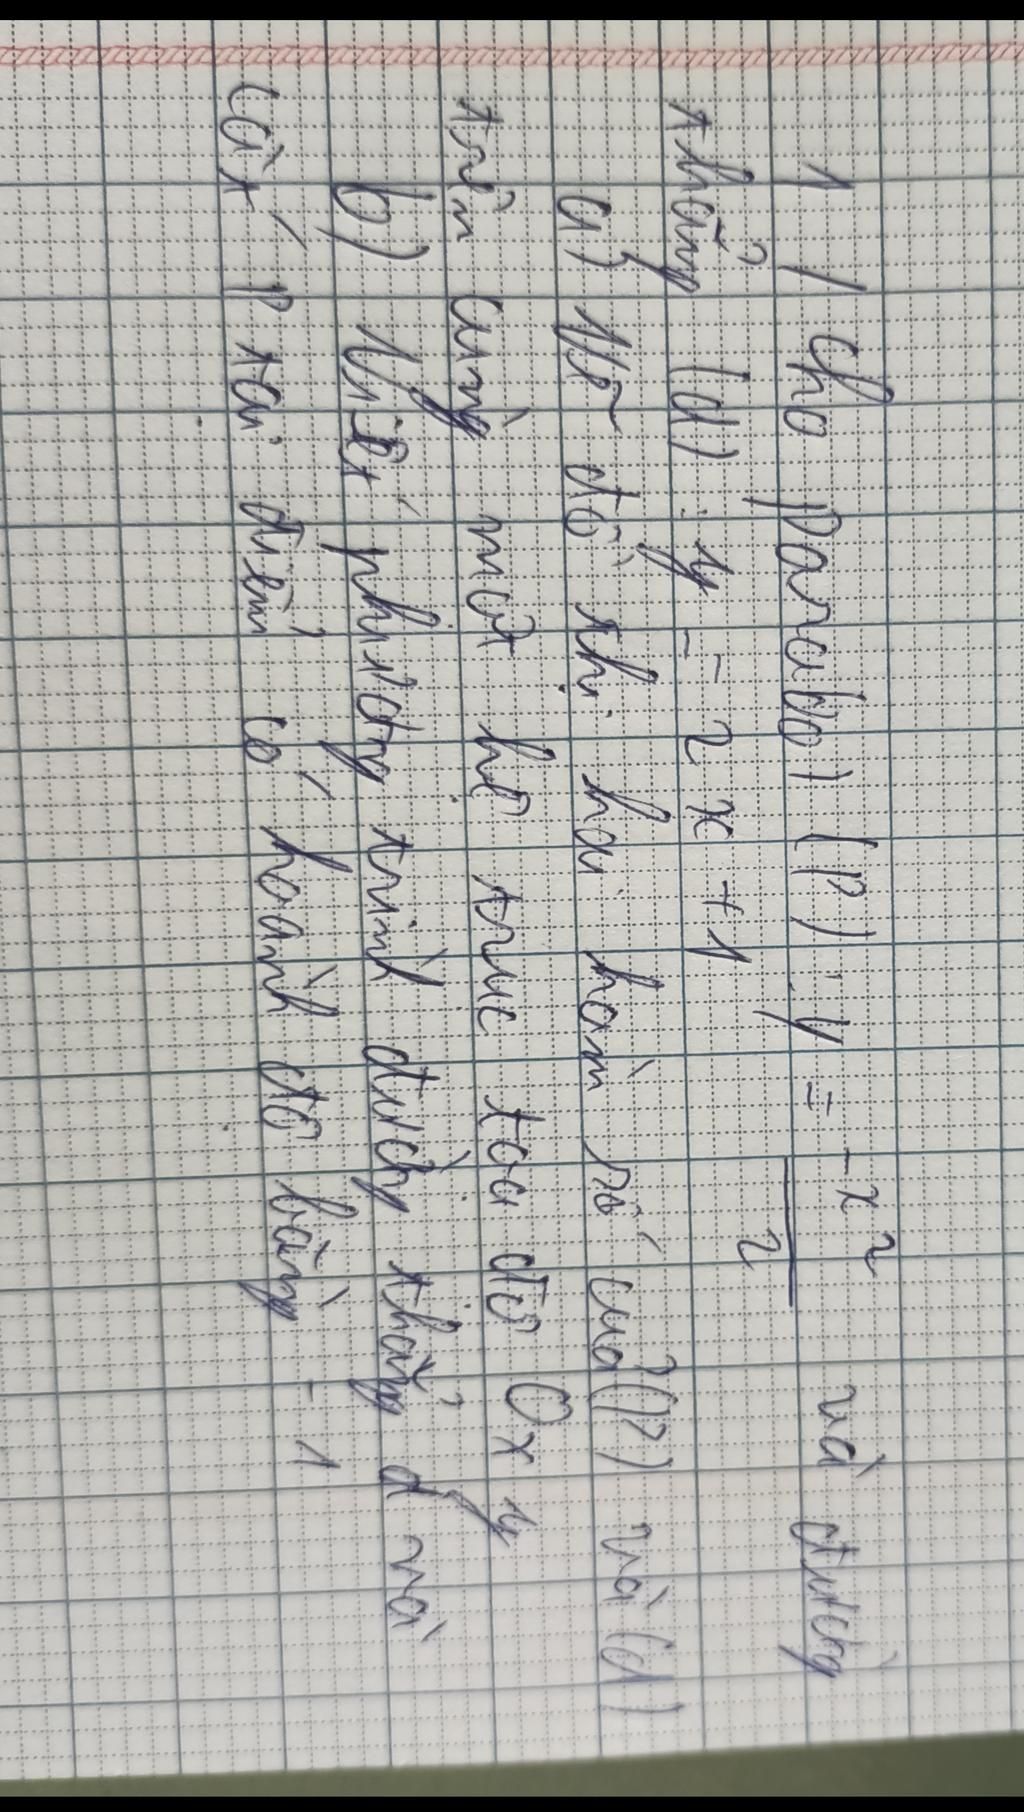 1 / cho Parabol (P) : y = -x²/2 và đường
thẳng (d) : y = 2x + 1
a) Vẽ đồ thị hai hàm số của (P) và (d)
trên cùng một hệ trục toạ độ Oxy
b) Viết phương trình đường thẳng d và
cắt P tại điểm có hoành độ bằng - 1